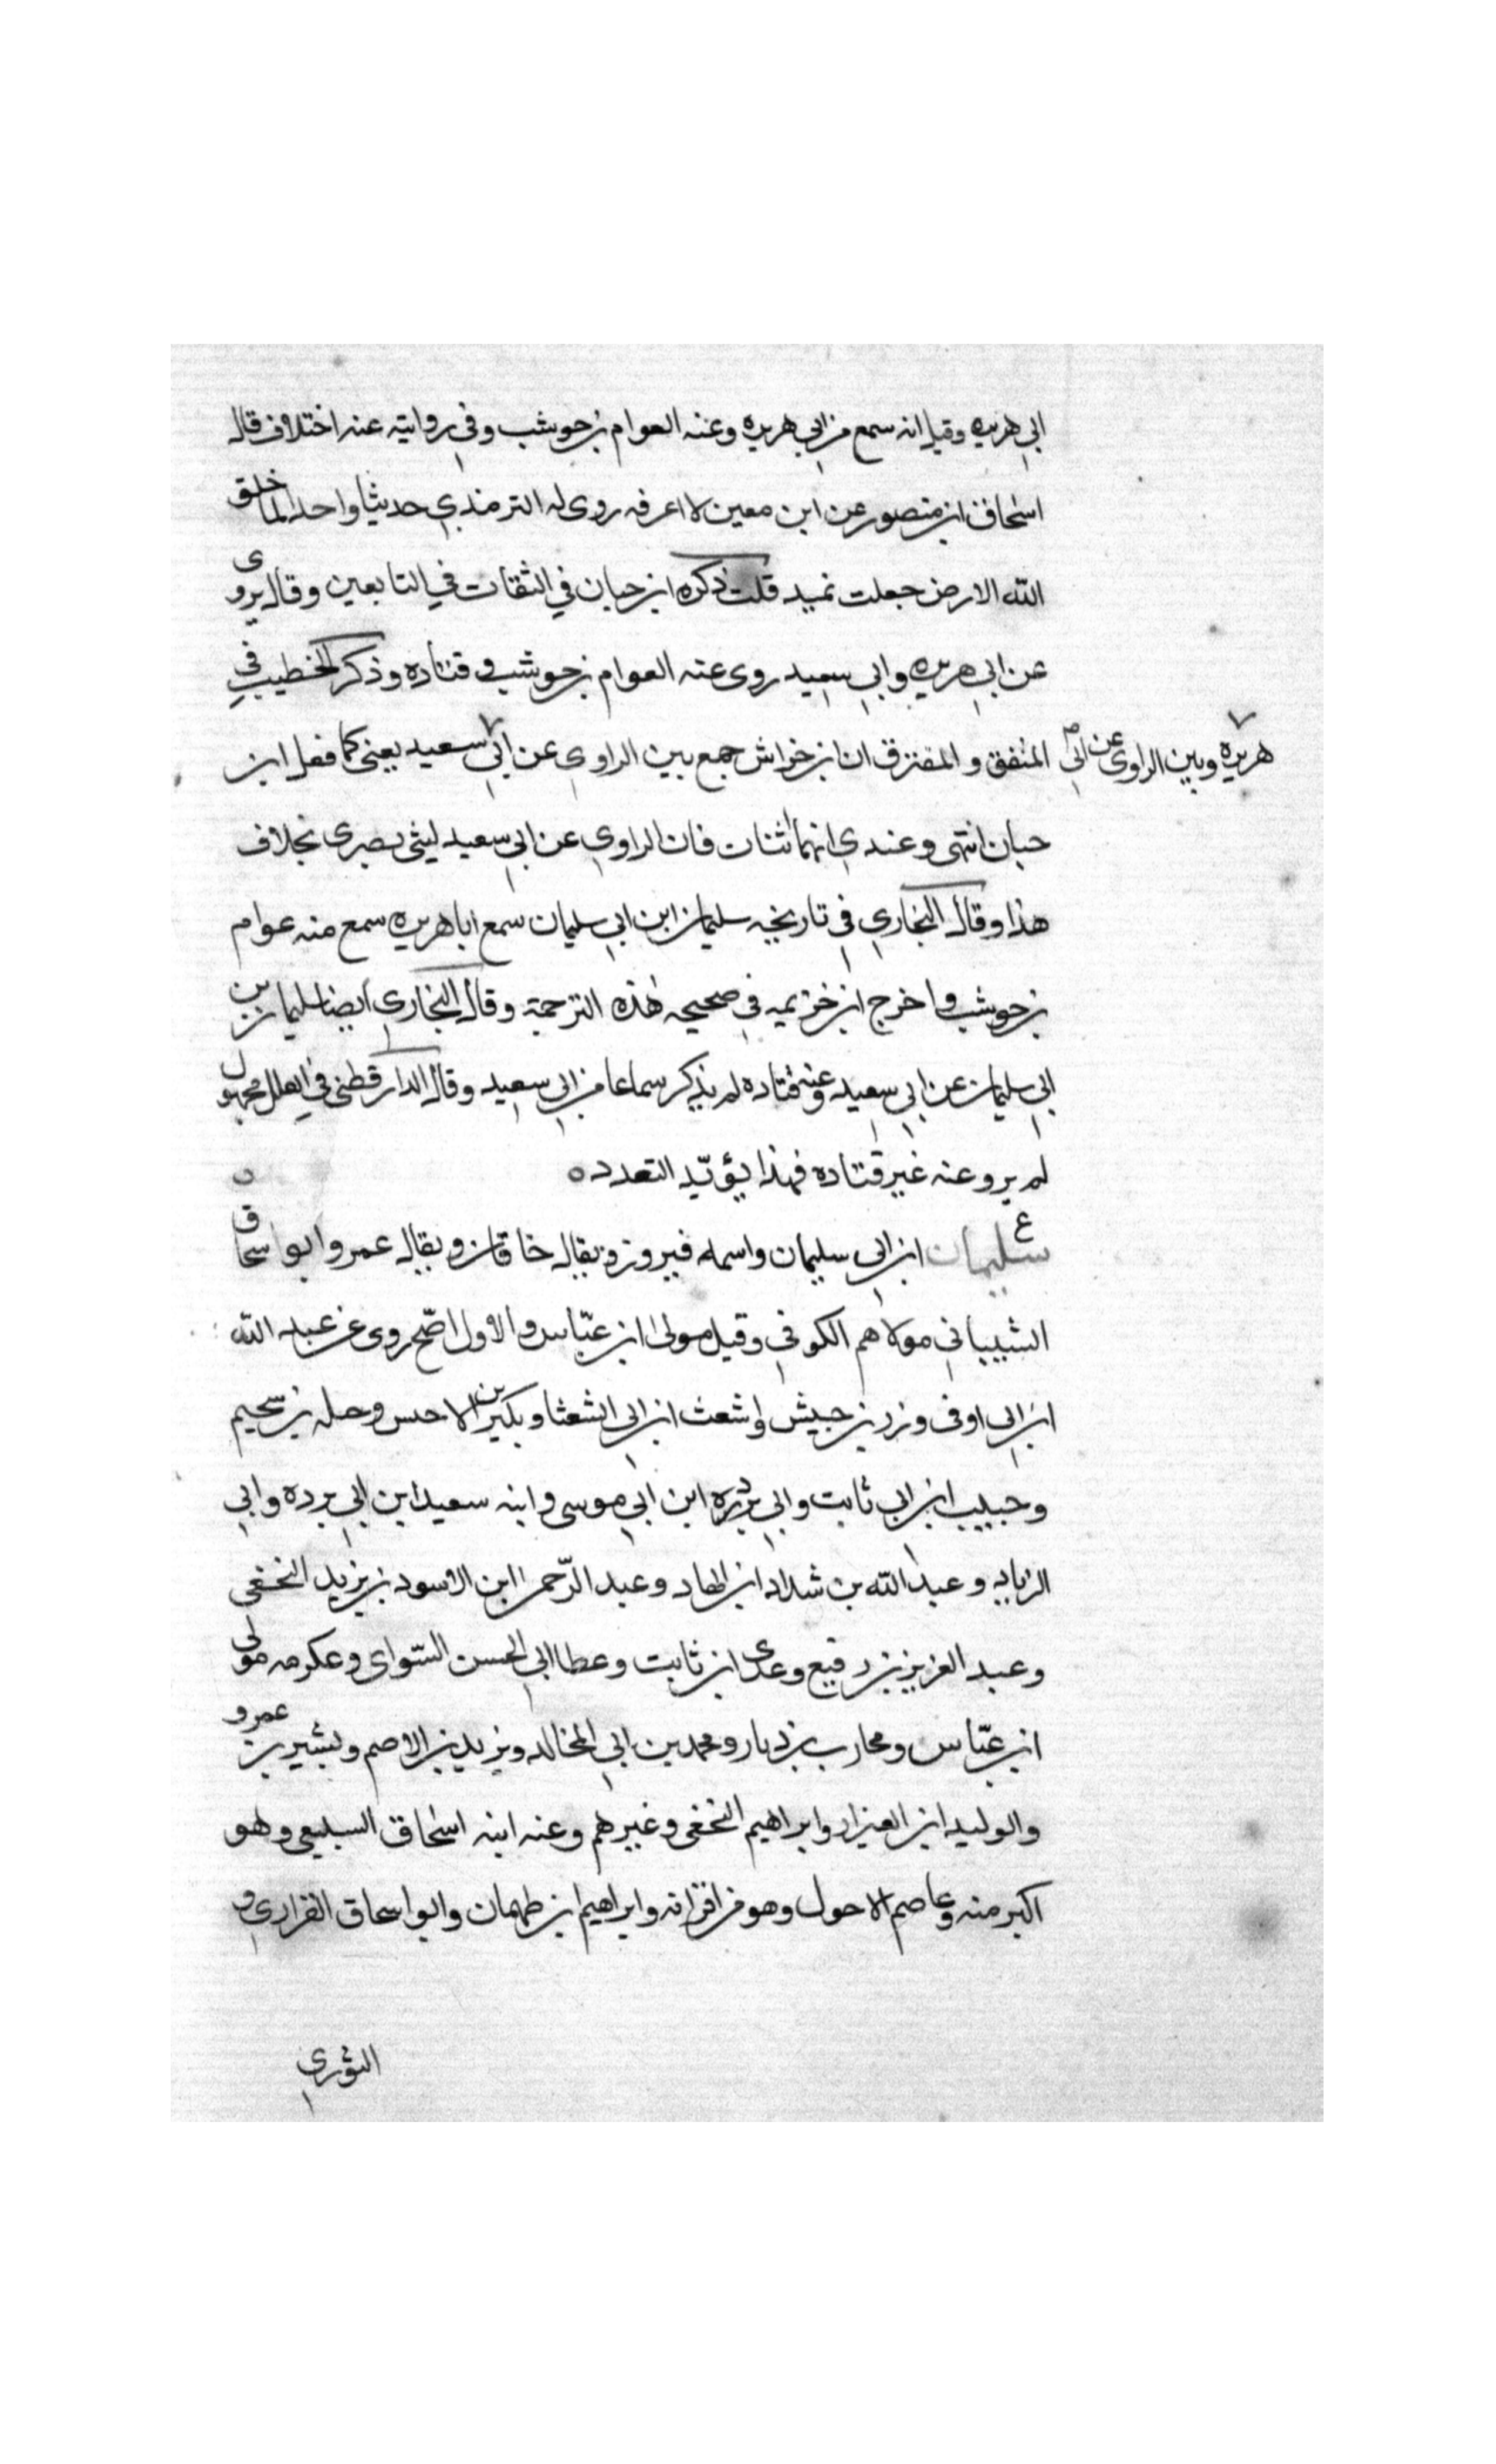 ابي هريره وقيل انه سمع من ابي هريره وعنه العوام بن حوشب وفي روايته عنه اختلاف قال
اسحاق ابن منصور عن ابن معين لا اعرفه روى له الترمذي حديثا واحدا لما خلق
الله الارض جعلت تميد قلت ذكره ابن حبان في الثقات في التابعين وقال يروى
عن ابي هريره وابي سعيد روى عنه العوام بن حوشب وقتاده وذكر الخطيب في
المتفق والمفترق ان ابن خراش جمع بين الراوي عن ابي سعيد يعنى كما فعل ابن
هريرة وبين الراوى عن ابي
حبان انتهى وعندي انهما اثنان فان الراوي عن ابي سعيد ليثى بصرى بخلاف
هذا وقال البخاري في تاريخه سليمان ابن ابي سليمان سمع ابا هريره سمع منه عوام
بن حوشب واخرج ابن خزيمه في صحيحه لهذه الترجمة وقال البخاري ايضا سليمان بن
ابي سليمان عن ابي سعيد وعنه قتاده لم يذكر سماعا من ابي سعيد وقال الدارقطنى في العلل مجهول
لم يرو عنه غير قتاده فهذا يؤيّد التعدد ه
ع سليمان ابن ابي سليمان واسمه فيروز ويقال خاقان ويقال عمرو ابو اسحاق
الشيباني مولاهم الكوفي وقيل مولى ابن عبّاس والاول اصّح روى عن عبد الله
ابن ابي اوفى وزر بن حبيش واشعث ابن ابي الشعثا وبكير بن الاخنس وجبله بن سحيم
وحبيب ابن ابي ثابت وابي بردره ابن ابي موسى وابنه سعيد ابن ابي برده وابي
الزياد وعبد الله بن شداد ابن الهاد وعبد الرّحمن ابن الاسود بن يزيد النخعى
وعبد العزيز بن رفيع وعدى ابن ثابت وعطا ابي الحسن السّواى وعكرمه مولى
ابن عبّاس ومحارب بن دثار ومحمد بن ابي المخالد ويزيد بن الاصم وبشير بن عمرو
والوليد ابن العيزار وابراهيم النخعى وغيرهم وعنه ابنه اسحاق السبيعى وهو
اكبر منه وعاصم الاحول وهو من اقرانه وابراهيم ابن طهمان وابو اسحاق الفزاري و
الثوري